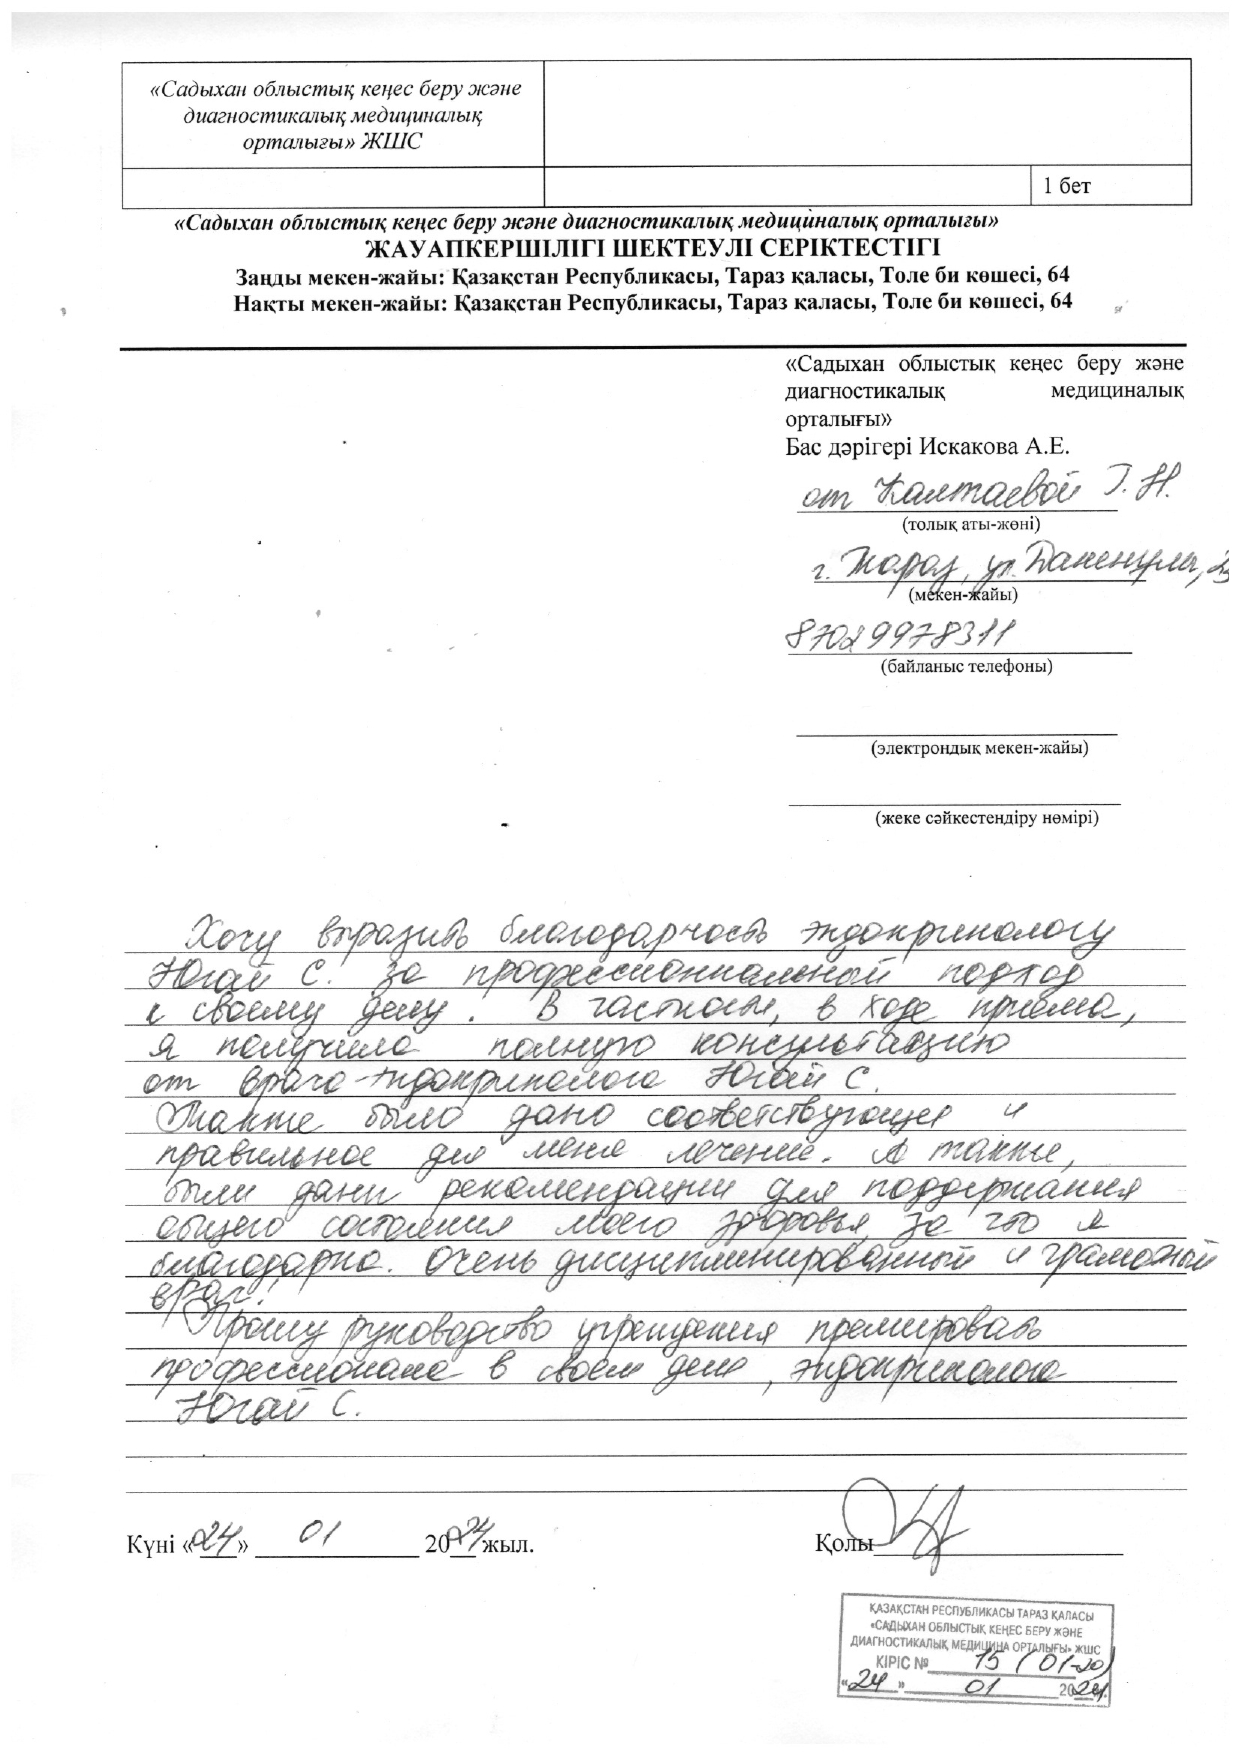 «Садыхан облыстық кеңес беру және
диагностикалық медициналық
орталығы» ЖШС
1 бет
«Садыхан облыстық кеңес беру және диагностикалық медициналық орталығы»
ЖАУАПКЕРШІЛІГІ ШЕКТЕУЛІ СЕРІКТЕСТІГІ
Заңды мекен-жайы: Қазақстан Республикасы, Тараз қаласы, Толе би көшесі, 64
Нақты мекен-жайы: Қазақстан Республикасы, Тараз қаласы, Толе би көшесі, 64
«Садыхан облыстық кеңес беру және
диагностикалық медициналық
орталығы»
Бас дәрігері Искакова А.Е.
от Калтаевой Г. Н.
(толық аты-жөні)
г. Тараз, ул.
(мекен-жайы)
87029978311
(байланыс телефоны)
(электрондық мекен-жайы)
(жеке сәйкестендіру нөмірі)
Хочу выразить благодарность эндокринологу
Югай С. за профессиональный подход
к своему делу. В частности, в ходе приема,
я получила полную консультацию
от врача-эндокринолога Югай С.
Также было дано соответствующее и
правильное для меня лечение. А также,
были даны рекомендации для поддержания
общего состояния моего здоровья, за что я
благодарна. Очень дисциплинированный и грамотный
врач!
Прошу руководство учреждения премировать
профессионала в своем деле, эндокринолога
Югай С.
Күні «24» 01 2024 жыл.
Қолы
ҚАЗАҚСТАН РЕСПУБЛИКАСЫ ТАРАЗ ҚАЛАСЫ
«САДЫХАН ОБЛЫСТЫҚ КЕҢЕС БЕРУ ЖӘНЕ
ДИАГНОСТИКАЛЫҚ МЕДИЦИНА ОРТАЛЫҒЫ» ЖШС
КІРІС № 15 (01-20)
«24» 01 2024.